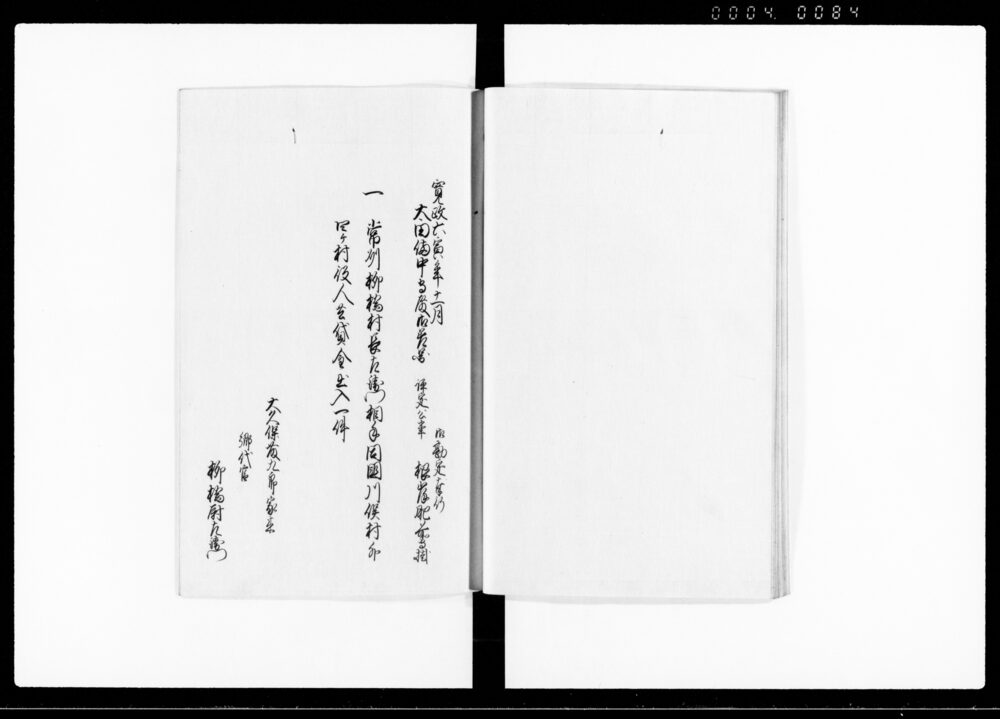 0004 0084
寛政六寅年十一月
太田備中守殿御差図
御勘定奉行
評定公事 根岸肥前守掛
一 常州柳橋村長左衛門相手同国川俣村外
四ヶ村役人共貸金出入一件
大久保藤九郎家来
郷代官
柳橋尉左衛門